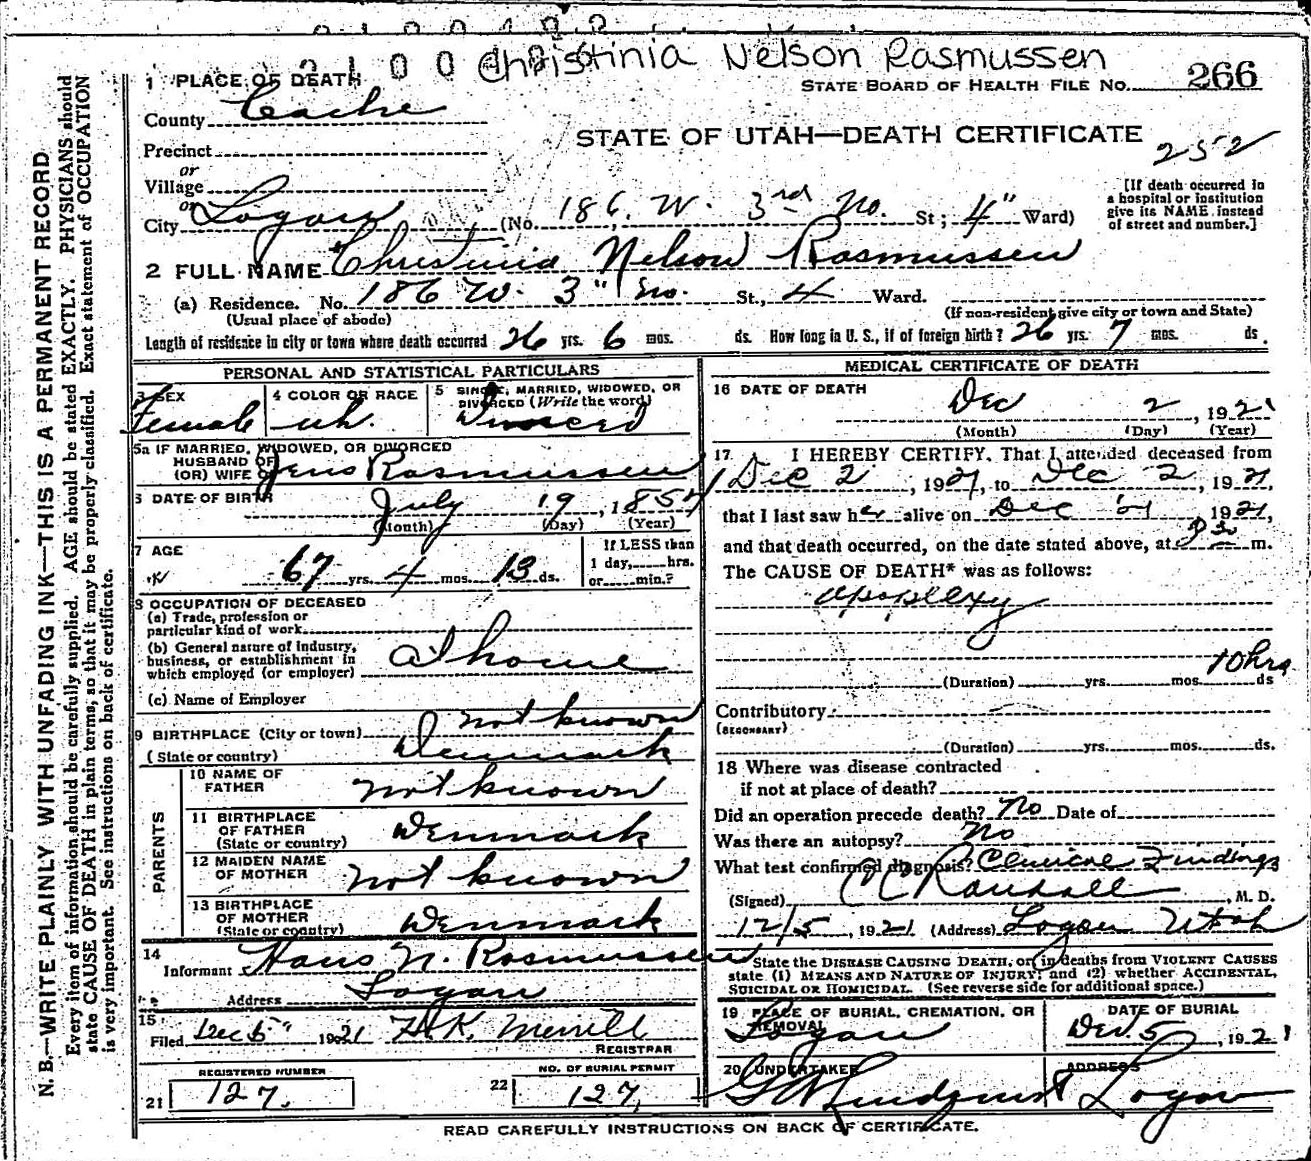 Christinia Nelson Rasmussen
1 PLACE OF DEATH
STATE BOARD OF HEALTH FILE NO. 266
County Cache
STATE OF UTAH—DEATH CERTIFICATE
252
Precinct
or
Village
or
City Logan (No. 186 W. 3rd No. St; 4" Ward)
[If death occurred in
a hospital or institution
give its NAME instead
of street and number.]
2 FULL NAME Christinia Nelson Rasmussen
(a) Residence. No. 186 W. 3" No. St., 4 Ward.
(Usual place of abode)
(If non-resident give city or town and State)
Length of residence in city or town where death occurred 26 yrs. 6 mos. ds. How long in U. S., if of foreign birth? 26 yrs. 7 mos. ds.
PERSONAL AND STATISTICAL PARTICULARS
3 SEX
Female
4 COLOR OR RACE
wh.
5 SINGLE, MARRIED, WIDOWED, OR
DIVORCED (Write the word)
Divorced
5a IF MARRIED, WIDOWED, OR DIVORCED
HUSBAND OF
(OR) WIFE OF Jens Rasmussen
6 DATE OF BIRTH July 19, 1854
(Month) (Day) (Year)
7 AGE
67 yrs. 4 mos. 13 ds.
If LESS than
1 day, hrs.
or min.?
8 OCCUPATION OF DECEASED
(a) Trade, profession or
particular kind of work
(b) General nature of industry,
business, or establishment in
which employed (or employer) at home
(c) Name of Employer
9 BIRTHPLACE (City or town) not known
(State or country) Denmark
PARENTS
10 NAME OF
FATHER not known
11 BIRTHPLACE
OF FATHER
(State or country) Denmark
12 MAIDEN NAME
OF MOTHER not known
13 BIRTHPLACE
OF MOTHER
(State or country) Denmark
14
Informant Hans N. Rasmussen
Address Logan
15
Filed Dec 5" 1921 H.K. Merrill
REGISTRAR
REGISTERED NUMBER
21 127.
NO. OF BURIAL PERMIT
22 127,
MEDICAL CERTIFICATE OF DEATH
16 DATE OF DEATH
Dec 2, 1921
(Month) (Day) (Year)
17 I HEREBY CERTIFY, That I attended deceased from
Dec 2, 1921, to Dec 2, 1921,
that I last saw her alive on Dec 1921,
and that death occurred, on the date stated above, at m.
The CAUSE OF DEATH* was as follows:
apoplexy
10 hrs.
(Duration) yrs. mos. ds
Contributory
(SECONDARY)
(Duration) yrs. mos. ds.
18 Where was disease contracted
if not at place of death?
Did an operation precede death? No Date of
Was there an autopsy? No
What test confirmed diagnosis? Clinical Findings
(Signed) Randall, M. D.
12/5, 1921 (Address) Logan Utah
State the DISEASE CAUSING DEATH, or in deaths from VIOLENT CAUSES
state (1) MEANS AND NATURE OF INJURY; and (2) whether ACCIDENTAL,
SUICIDAL OR HOMICIDAL. (See reverse side for additional space.)
19 PLACE OF BURIAL, CREMATION, OR
REMOVAL
Logan
DATE OF BURIAL
Dec. 5, 1921
20 UNDERTAKER
ADDRESS
Logan
READ CAREFULLY INSTRUCTIONS ON BACK OF CERTIFICATE.
N. B.—WRITE PLAINLY WITH UNFADING INK—THIS IS A PERMANENT RECORD
Every item of information should be carefully supplied. AGE should be stated EXACTLY. PHYSICIANS should
state CAUSE OF DEATH in plain terms, so that it may be properly classified. Exact statement of OCCUPATION
is very important. See instructions on back of certificate.